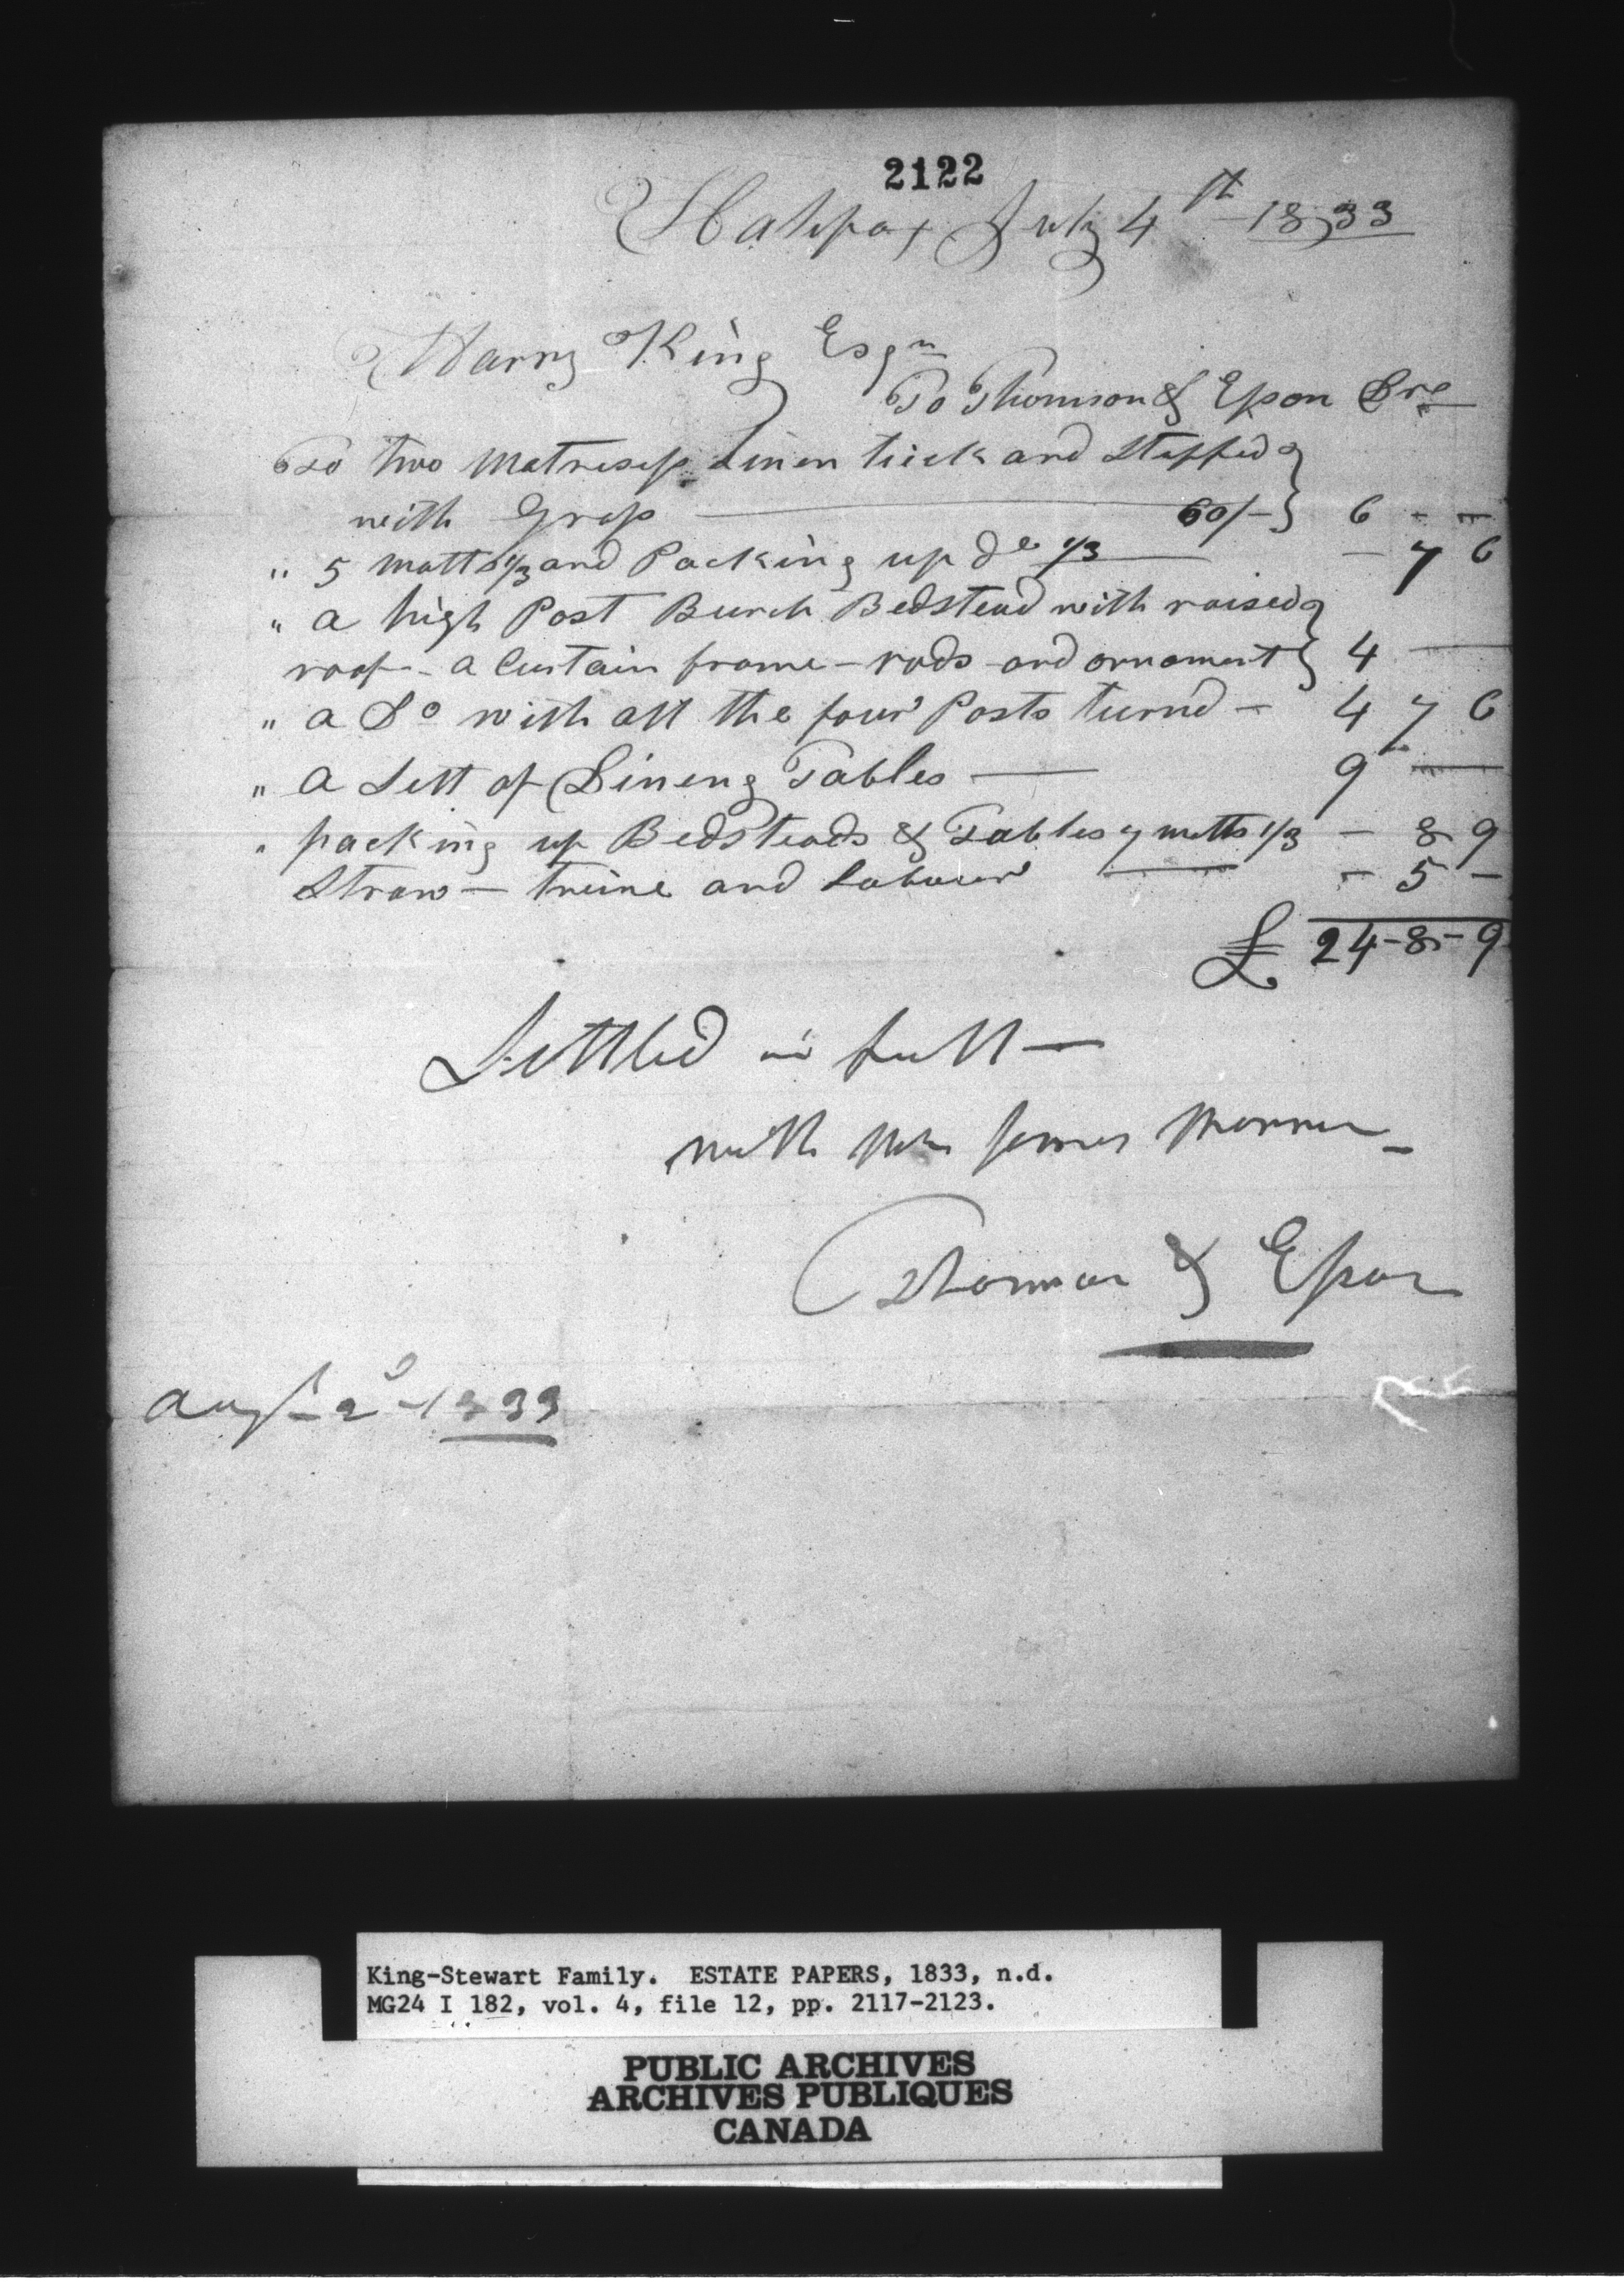 2122
Halifax July 4th 1833
Harry King Esqr
To Thomson & Esson Dre
To two Matresess Linen tick and Stuffed }
with Grass 60/- } 6 - -
" 5 matts 1/3 and Packing up do 1/3 - 7 6
" a high Post Burch Bedstead with raised }
roof - a Curtain frame - rods and ornament } 4
" a Do with all the four Posts turnd - 4 7 6
" a Sett of Dineng Tables 9
" packing up Bedsteads & Tables 7 matts 1/3 - 8 9
Straw - twine and Labour - 5 -
£ 24-8-9
Settled in full
with Mr James
Thomson & Esson
Augst 2d 1833
King-Stewart Family. ESTATE PAPERS, 1833, n.d.
MG24 I 182, vol. 4, file 12, pp. 2117-2123.
PUBLIC ARCHIVES
ARCHIVES PUBLIQUES
CANADA